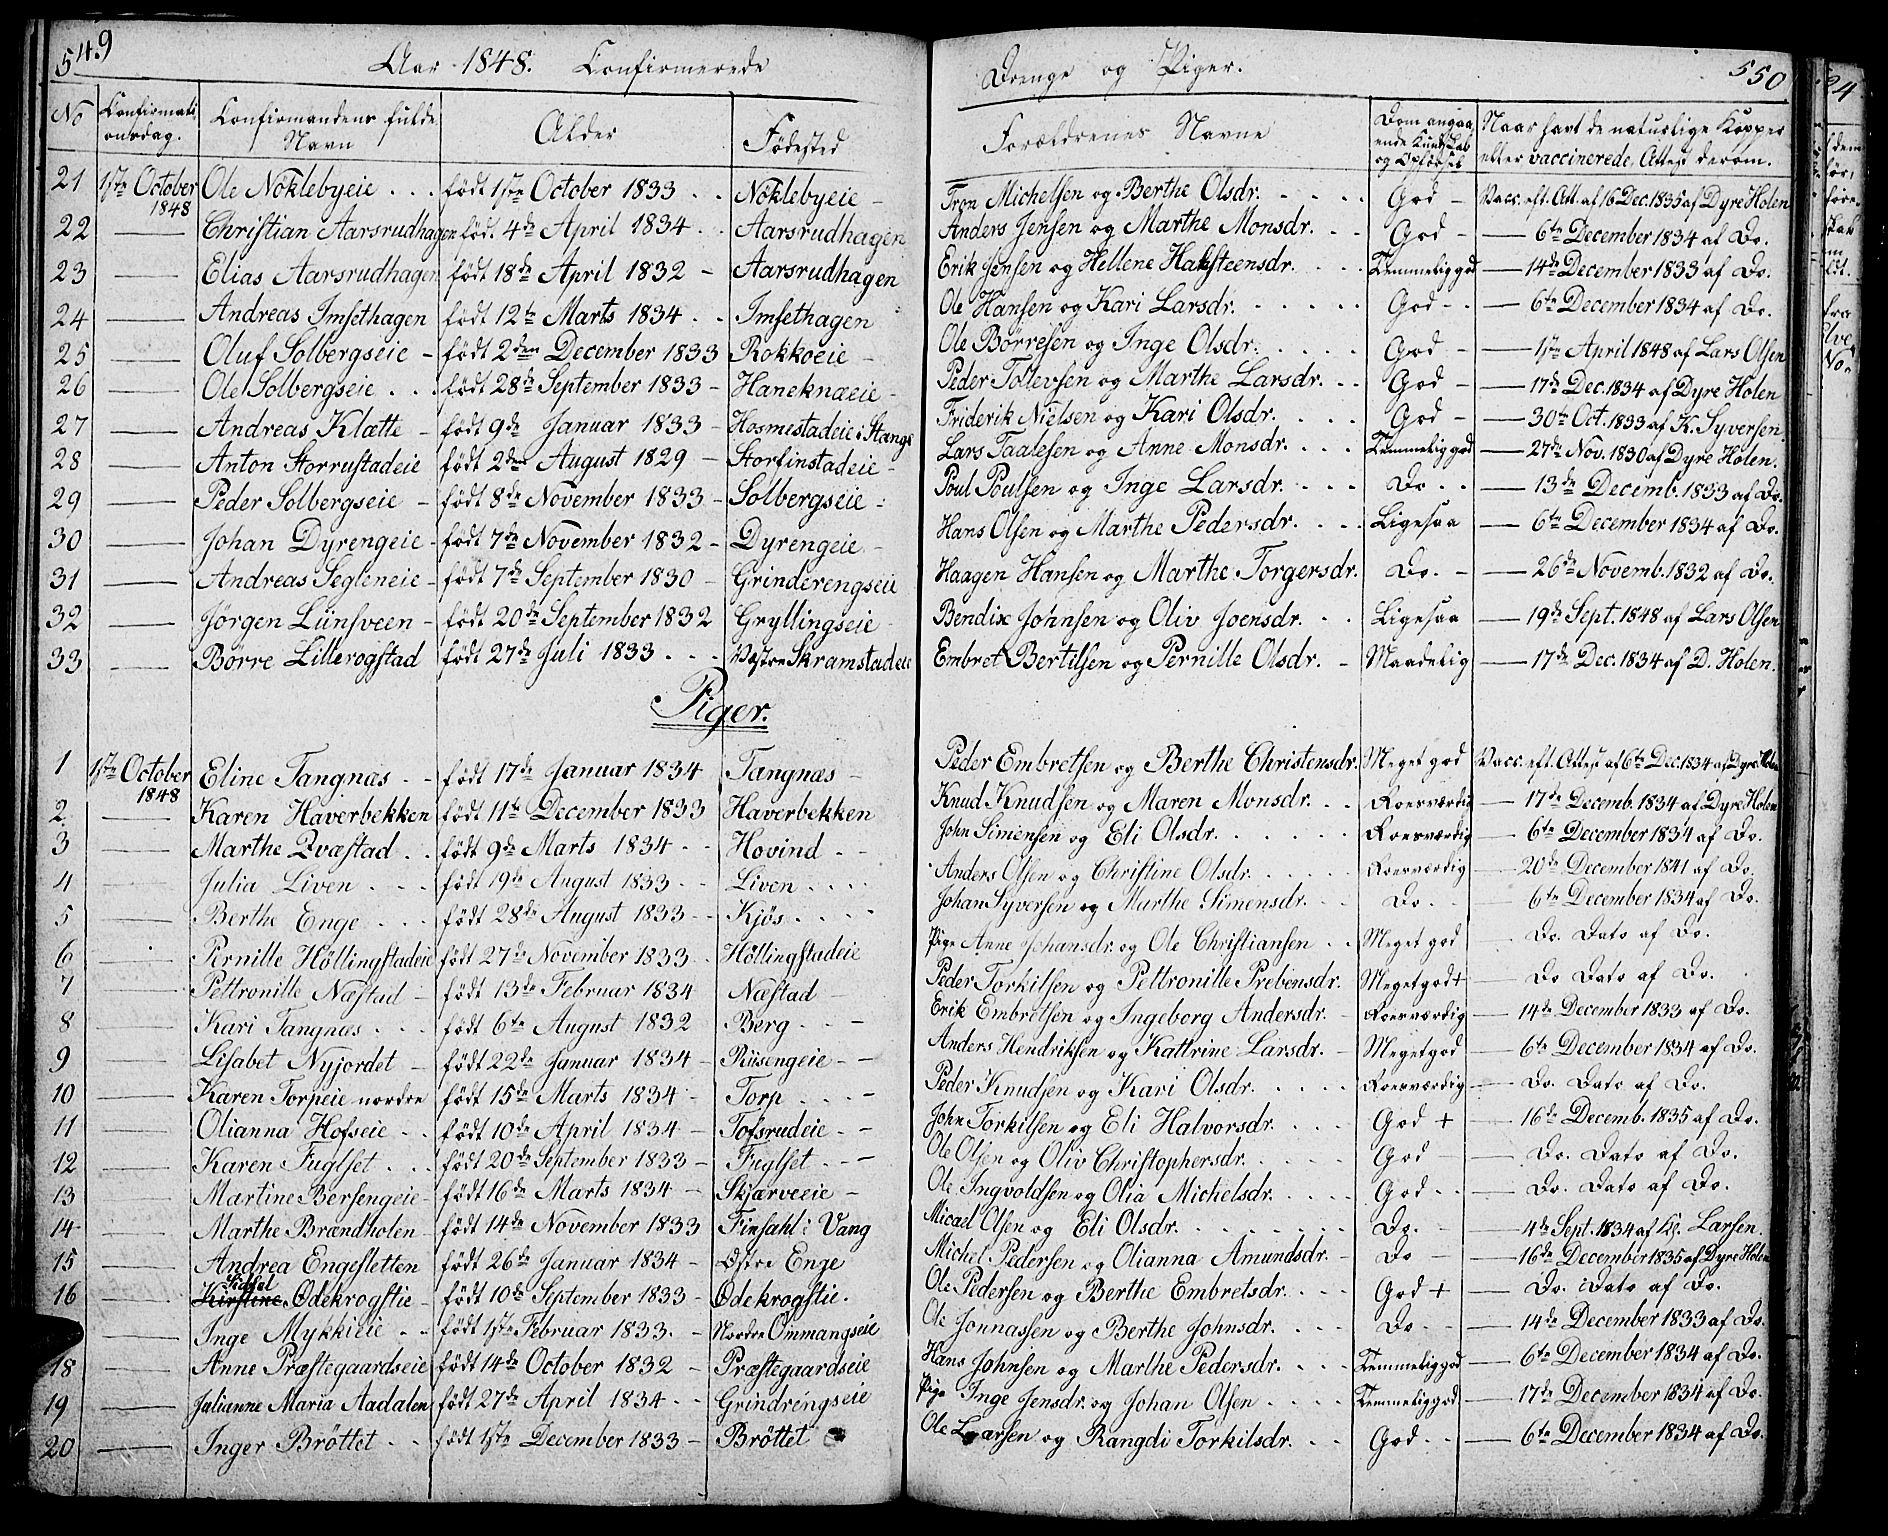 549
Aar 1848. Confirmerede
Drenge og Piger.
550
No | Confirmationsdag. | Confirmandens fulde Navn | Alder | Födested | Forældrenes Navne | Dom angaaende Kundskab og Opførsel | Naar havt de naturlige Kopper eller vaccinerede. Attest derom.
21 | 1ste October 1848 | Ole Nöklebyeie | födt 1ste October 1833 | Nöklebyeie | Tron Michelsen og Berthe Olsdr. | God | Vacc. eft. Att. af 16 Dec. 1835 af Dyre Holen
22 | — | Christian Aarsrudhagen | föd. 4de April 1834 | Aarsrudhagen | Anders Jensen og Marthe Monsdr. | God | — 6te December 1834 af Do.
23 | — | Elias Aarsrudhagen | födt 18de April 1832 | Aarsrudhagen | Erik Jensen og Hellene Haksteensdr. | Temmelig god | — 14de December 1833 af Do.
24 | — | Andreas Imsethagen | födt 12te Marts 1834 | Imsethagen | Ole Hansen og Kari Larsdr. | God | — 6te December 1834 af Do.
25 | — | Oluf Solbergseie | födt 2den December 1833 | Rokkoeie | Ole Børresen og Inge Olsdr. | God | — 1ste April 1848 af Lars Olsen
26 | — | Ole Solbergseie | födt 28de September 1833 | Haneknæeie | Peder Tollevsen og Marthe Larsdr. | God | — 17de Dec. 1834 af Dyre Holen
27 | — | Andreas Klætte | födt 9de Januar 1833 | Hosmestadeie i Stange | Friderik Nielsen og Kari Olsdr. | God | — 30te Oct. 1833 af K. Syversen.
28 | — | Anton Storrustadeie | födt 2den August 1829 | Storfinstadeie | Lars Taalesen og Anne Monsdr. | Temmelig god | — 27de Nov. 1830 af Dyre Holen.
29 | — | Peder Solbergseie | födt 8de November 1833 | Solbergseie | Poul Poulsen og Inge Larsdr. | Do | — 13de Decemb. 1833 af Do.
30 | — | Johan Dyrengeie | födt 7de November 1832 | Dyrengeie | Hans Olsen og Marthe Pedersdr. | Ligesaa | — 6te December 1834 af Do.
31 | — | Andreas Segleneie | födt 7de September 1830 | Grinderengseie | Haagen Hansen og Marthe Torgersdr. | Do. | — 26de Novemb. 1832 af Do.
32 | — | Jørgen Lünsveen | födt 20de September 1832 | Gryllingseie | Bendix Johnsen og Oliv Joensdr. | Ligesaa | — 19de Sept. 1848 af Lars Olsen
33 | — | Börre Lillerogstad | födt 27de Juli 1833 | Væstre Skramstadeie | Embret Bertilsen og Pernille Olsdr. | Maadelig | — 17de Dec. 1834 af D. Holen.
Piger.
1 | 1ste October 1848 | Eline Tangnæs | födt 17de Januar 1834 | Tangnæs | Peder Embretsen og Berthe Christensdr. | Meget god | Vacc. eft. Attest af 6te Dec. 1834 af Dyre Holen
2 | — | Karen Haverbekken | födt 11te December 1833 | Haverbekken | Knud Knudsen og Maren Monsdr. | Roesværdig | — 17de Decemb. 1834 af Dyre Holen
3 | — | Marthe Qvæstad | födt 9de Marts 1834 | Hovind | John Simensen og Eli Olsdr. | Roesværdig | — 6te December 1834 af Do.
4 | — | Julia Liven | födt 19de August 1833 | Liven | Anders Olsen og Christine Olsdr. | Roesværdig | — 20de December 1841 af Do.
5 | — | Berthe Enge | födt 28de August 1833 | Kjös | Johan Syversen og Marthe Simensdr. | Do. | — 6te December 1834 af Do.
6 | Pernille Höllingstadeie | födt 27de November 1833 | Höllingstadeie | Pige Anne Johansdr. og Ole Christiansen | Meget god | Do. Dato af Do.
7 | — | Pettronille Næstad | födt 13de Februar 1834 | Næstad | Peder Torkilsen og Pettronille Prebensdr. | Meget god + | Do Dato af Do.
8 | — | Kari Tangnæs | födt 6te August 1832 | Berg | Erik Embretsen og Ingeborg Andersdr. | Roesværdig | — 14de December 1833 af Do.
9 | — | Lisabet Nyjordet | födt 22de Januar 1834 | Riisengeie | Anders Hendriksen og Kattrine Larsdr. | Meget god | — 6te December 1834 af Do.
10 | — | Karen Torpeie nordre | födt 15de Marts 1834 | Torp | Peder Knudsen og Kari Olsdr. | Roesværdig | — Do. Dato af Do.
11 | — | Olianna Hofseie | födt 10de April 1834 | Tofsrudeie | John Torkilsen og Eli Halvorsdr. | God + | — 16de Decemb. 1835 af Do.
12 | — | Karen Fuglset | födt 20de September 1833 | Fuglset | Ole Olsen og Oliv Christophersdr. | God | — Do. Dato af Do.
13 | — | Martine Bersengeie | födt 16de Marts 1834 | Skjærveeie | Ole Ingvoldsen og Olia Michelsdr. | God | — Do. Dato af Do.
14 | — | Marthe Brændholen | födt 14de November 1833 | Finsahl i Vang | Micael Olsen og Eli Olsdr. | Do. | — 4de Sept. 1834 af Larsen.
15 | — | Andrea Engesletten | födt 26de Januar 1834 | Østre Enge | Michel Pedersen og Olianna Amundsdr. | Do | — 16de December 1835 af Dyre Holen
16 | — | Kirstine Sidsel Ödekrogstie | födt 10de September 1833 | Ödekrogstie. | Ole Pedersen og Berthe Embretsdr. | God + | — Do. Dato af Do.
— | Inge Mykkieie | födt 1ste Februar 1833. | Nordre Ommangseie | Ole Jonnassen og Berthe Johnsdr. | Do | — 14de December 1833 af Do.
18 | — | Anne Præstegaardseie | födt 14de October 1832 | Præstegaardseie | Hans Johnsen og Marthe Pedersdr. | Temmelig god | — 6te December 1834 af Do.
19 | — | Julianne Maria Aadalen | födt 27de April 1834 | Grindringseie | Pige Inge Jensdr. og Johan Olsen | Temmelig god | — 17de December 1834 af Do.
20 | — | Inger Bröttet | födt 1ste December 1833 | Bröttet | Ole Larsen og Rangdi Torkilsdr. | God | — 6te December 1834 af Do.